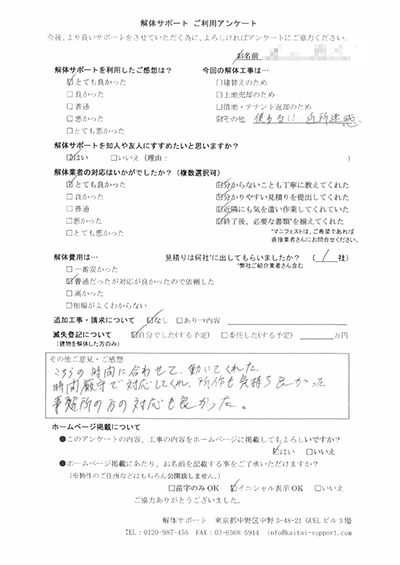 解体サポート ご利用アンケート
今後、より良いサポートをさせていただく為に、よろしければアンケートにご協力ください。
お名前
解体サポートを利用したご感想は？
☑とても良かった
□良かった
□普通
□悪かった
□とても悪かった
今回の解体工事は…
□建替えのため
□土地売却のため
□借地・テナント返却のため
☑その他 使わない、近所迷惑
解体サポートを知人や友人にすすめたいと思いますか？
☑はい □いいえ（理由： ）
解体業者の対応はいかがでしたか？（複数選択可）
☑とても良かった
□良かった
□普通
□悪かった
□とても悪かった
☑分からないことも丁寧に教えてくれた
☑分かりやすい見積りを提出してくれた
☑近隣にも気を遣い作業してくれていた
☑終了後、必要な書類*を揃えてくれた
*マニフェストは、ご希望であれば
直接業者さんにお問合せください。
解体費用は…
□一番安かった
☑普通だったが対応が良かったので依頼した
□高かった
□相場がよくわからない
見積りは何社*に出してもらいましたか？ （ 1 社）
*弊社ご紹介業者さん含む
追加工事・請求について ☑なし □あり→内容
滅失登記について ☑自分でした(する予定) □委任した(する予定) 万円
(建物を解体した方のみ)
その他ご意見・ご感想
こちらの時間に合わせて、動いてくれた。
時間厳守で対応してくれ、所作も気持ち良かった
事務所の方の対応も良かった。
ホームページ掲載について
●このアンケートの内容、工事の内容をホームページに掲載してもよろしいですか？
☑はい □いいえ
●ホームページ掲載にあたり、お名前を記載する事をご了承いただけますか？
(※物件のご住所などはもちろん公開致しません。)
□苗字のみOK ☑イニシャル表示OK □いいえ
ご協力ありがとうございました。
解体サポート 東京都中野区中野3-48-21 GUELビル3階
TEL：0120-987-456 FAX：03-6368-5914 info@kaitai-support.com